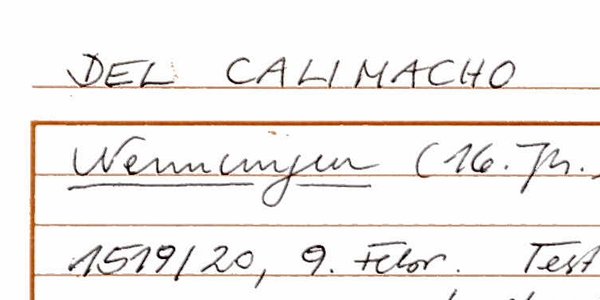 DEL CALIMACHO
Nennungen (16. Jh.
1519/20, 9. Febr. Test